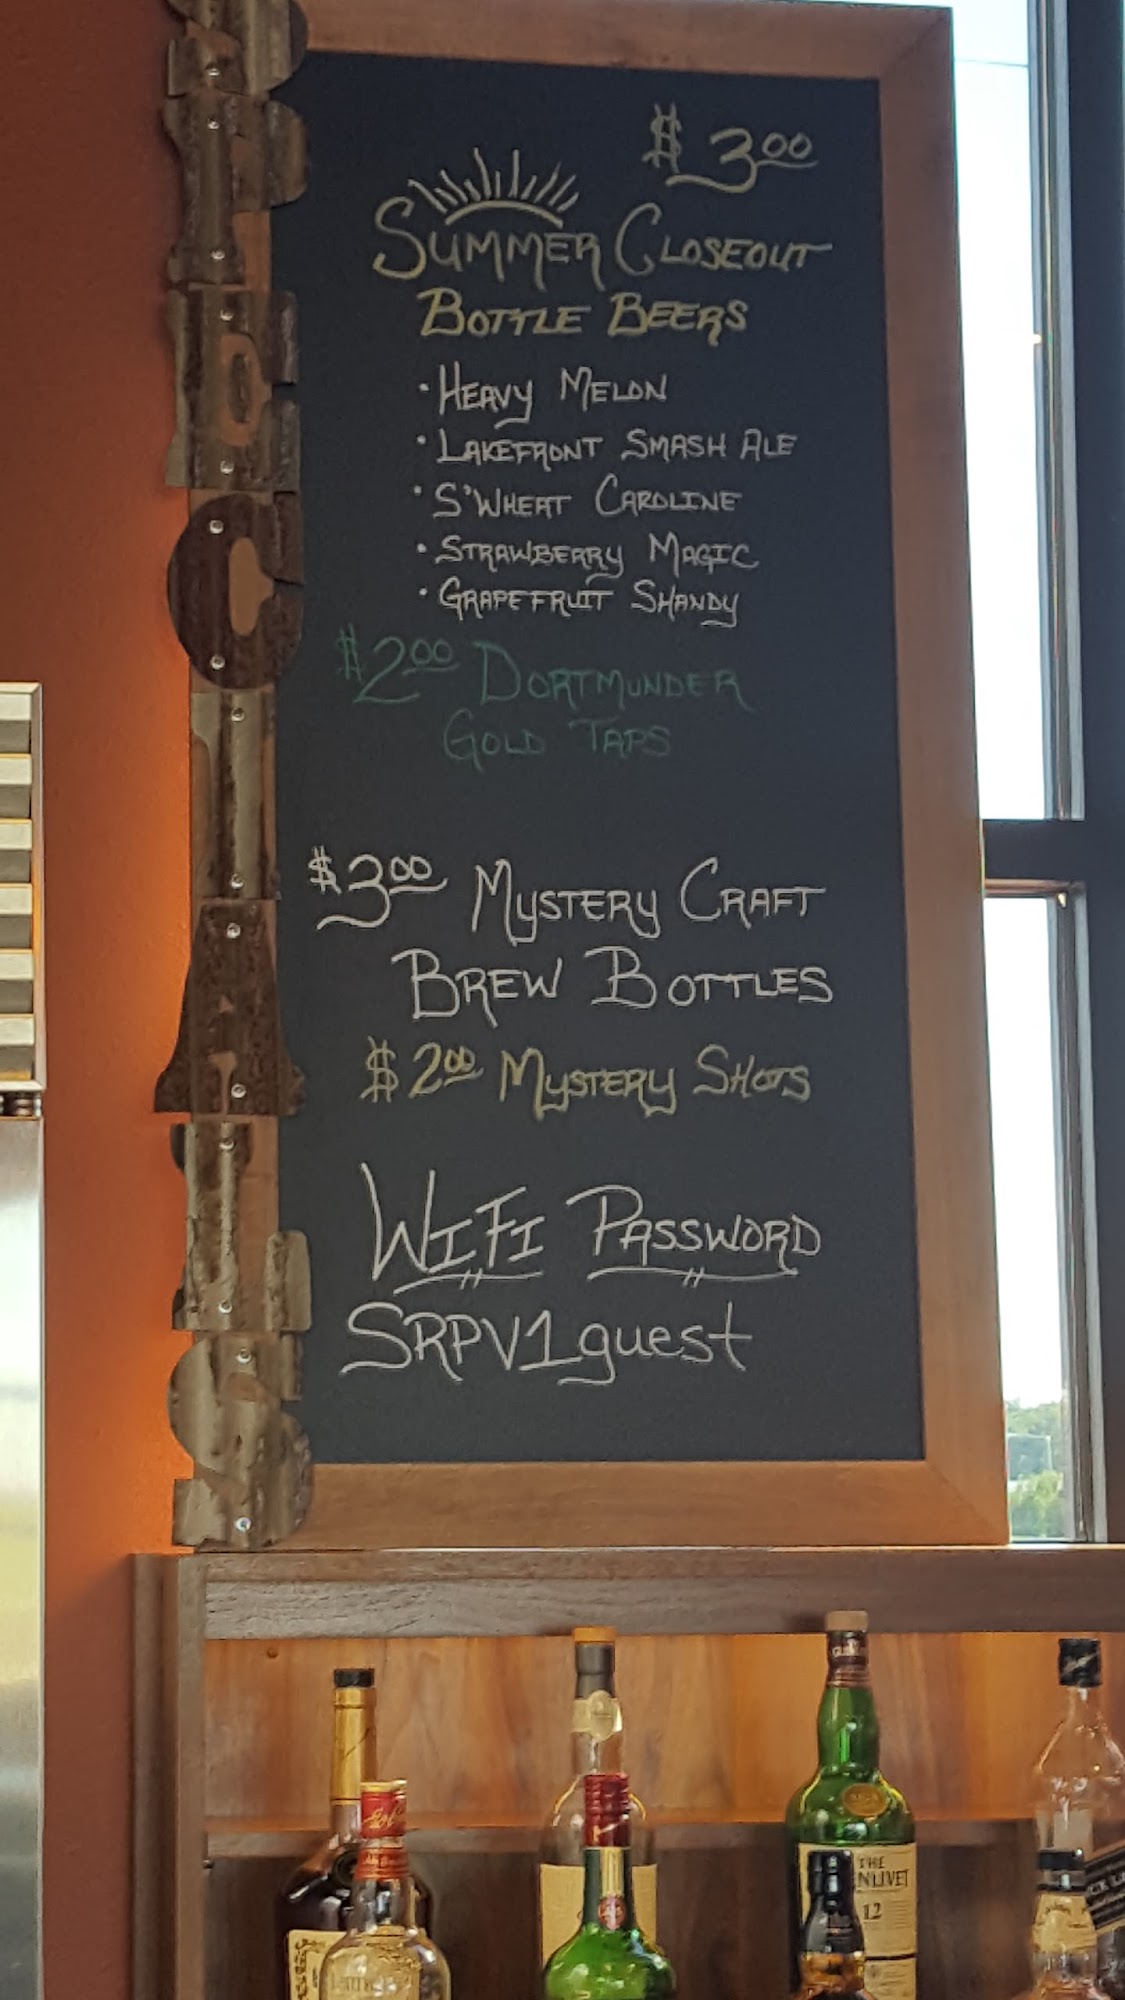 $3.00
SUMMER CLOSEOUT
BOTTLE BEERS
• HEAVY MELON
• LAKEFRONT SMASH ALE
• S'WHEAT CAROLINE
• STRAWBERRY MAGIC
• GRAPEFRUIT SHANDY
$2.00 DORTMUNDER
GOLD TAPS
$3.00 MYSTERY CRAFT
BREW BOTTLES
$2.00 MYSTERY SHOTS
WIFI PASSWORD
SRPV1guest
SPECIALS
THE
NLIVET
12